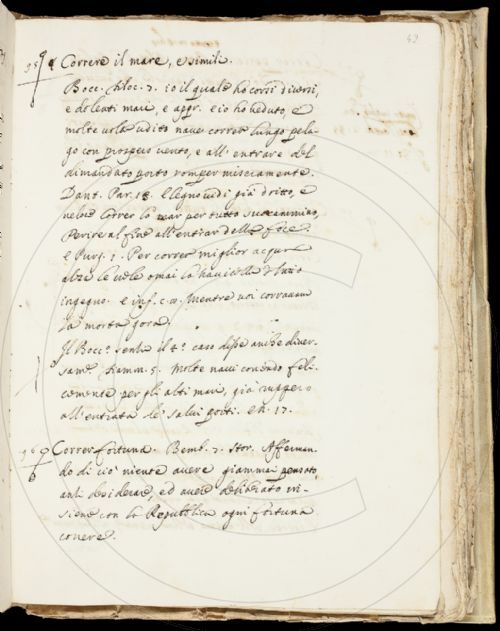 49
95 Correre il mare, e simili.
Bocc. filoc. 7. io il quale ho corsi diversi,
e dolenti mari, e appr. e io ho veduto, e
molte volte udito nave correr lungo pela-
go con prospero vento, e all' entrare del
dimandato porto romper miseramente.
Dant. Par. 13. E legno vidi già dritto, e
veloce Correr lo mar per tutto suo cammino,
Perire al fine all' entrar della foce.
E Purg. 1. Per correr miglior acqua
alza le vele omai la navicella del mio
ingegno. e inf. c. 8. Mentre noi corravam
la morta gora.
Il Bocc. senza il 4.º caso disse anche diver-
samᵉ. fiamm. 5. Molte navi correndo feli-
cemente per gli alti mari, già ruppero
all' entrata de' salvi porti. e h. 17.
96 Correr fortuna. Bemb. 7. stor. Afferman-
do di ciò niente avere giammai pensato,
anzi desiderare, ed avere deliberato in-
sieme con la Repubblica ogni fortuna
correre.